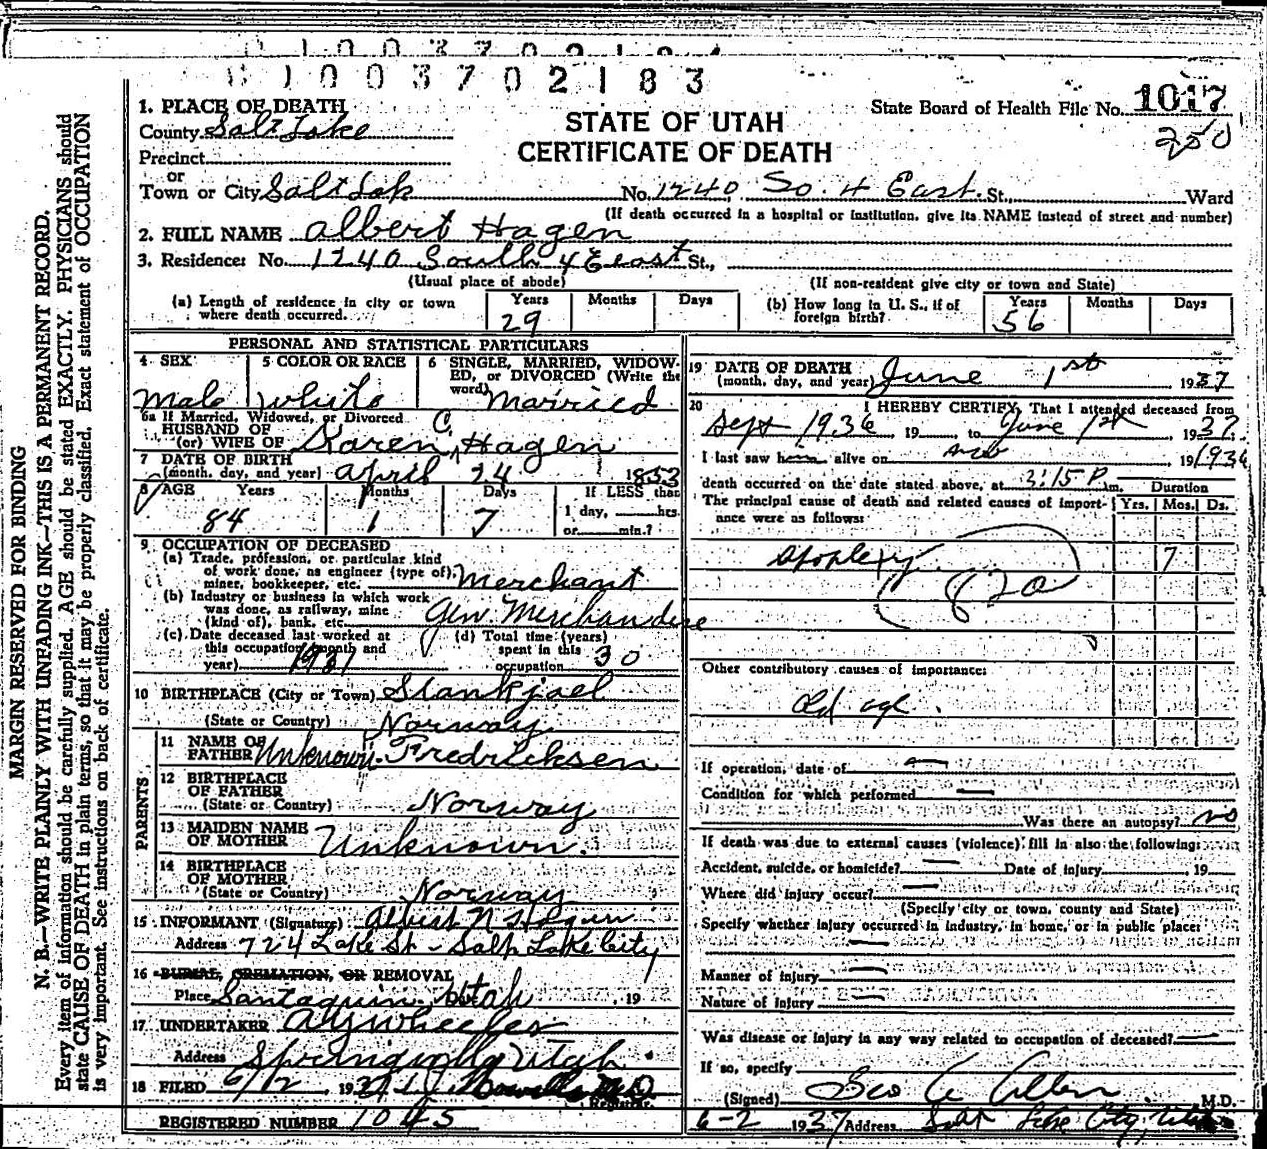 1003702183
1. PLACE OF DEATH
County Salt Lake
STATE OF UTAH
CERTIFICATE OF DEATH
State Board of Health File No. 1017
250
Precinct
or
Town or City Salt Lak No. 1240 So. 4 East St., Ward
(If death occurred in a hospital or institution, give its NAME instead of street and number)
2. FULL NAME Albert Hagen
3. Residence: No. 1240 South 4 East St.,
(Usual place of abode) (If non-resident give city or town and State)
(a) Length of residence in city or town where death occurred. Years 29 Months Days
(b) How long in U. S., if of foreign birth? Years 56 Months Days
PERSONAL AND STATISTICAL PARTICULARS
4 SEX Male
5 COLOR OR RACE White
6 SINGLE, MARRIED, WIDOWED, or DIVORCED (Write the word) Married
6a If Married, Widowed, or Divorced
HUSBAND OF
(or) WIFE OF Karen C. Hagen
7 DATE OF BIRTH
(month, day, and year) April 24 1853
8 AGE Years 84 Months 1 Days 7 If LESS than 1 day, hrs. or min.?
9 OCCUPATION OF DECEASED
(a) Trade, profession, or particular kind
of work done, as engineer (type of),
miner, bookkeeper, etc. Merchant
(b) Industry or business in which work
was done, as railway, mine
(kind of), bank, etc. Gen Merchandise
(c) Date deceased last worked at
this occupation (month and
year) 1931
(d) Total time (years)
spent in this
occupation 30
10 BIRTHPLACE (City or Town)
(State or Country) Norway
PARENTS
11 NAME OF
FATHER Unknown Fredricksen
12 BIRTHPLACE
OF FATHER
(State or Country) Norway
13 MAIDEN NAME
OF MOTHER Unknown.
14 BIRTHPLACE
OF MOTHER
(State or Country) Norway
15 INFORMANT (Signature) Albert N Hagen
Address 724 Lake St - Salt Lake City
16 BURIAL, CREMATION, OR REMOVAL
Place Santaquin, Utah, 19
17 UNDERTAKER
Address Springville Utah.
18 FILED 6/2, 1937 M.D.
Registrar.
REGISTERED NUMBER 1045
19 DATE OF DEATH
(month, day, and year) June 1st 1937
20 I HEREBY CERTIFY, That I attended deceased from
Sept 1936 19, to June 1st, 1937.
I last saw h alive on 1936
death occurred on the date stated above, at 3:15 P m. Duration
The principal cause of death and related causes of importance were as follows: Yrs. Mos. Ds.
Apoplexy 7
82a
Other contributory causes of importance:
Old age.
If operation, date of
Condition for which performed
Was there an autopsy? no
If death was due to external causes (violence) fill in also the following:
Accident, suicide, or homicide? Date of injury, 19
Where did injury occur?
(Specify city or town, county and State)
Specify whether injury occurred in industry, in home, or in public place:
Manner of injury
Nature of injury
Was disease or injury in any way related to occupation of deceased?
If so, specify
(Signed) Geo A Allen, M.D.
6-2 1937 Address Salt Lake City, Utah
MARGIN RESERVED FOR BINDING
N. B.—WRITE PLAINLY WITH UNFADING INK—THIS IS A PERMANENT RECORD.
Every item of information should be carefully supplied. AGE should be stated EXACTLY. PHYSICIANS should
state CAUSE OF DEATH in plain terms, so that it may be properly classified. Exact statement of OCCUPATION
is very important. See instructions on back of certificate.